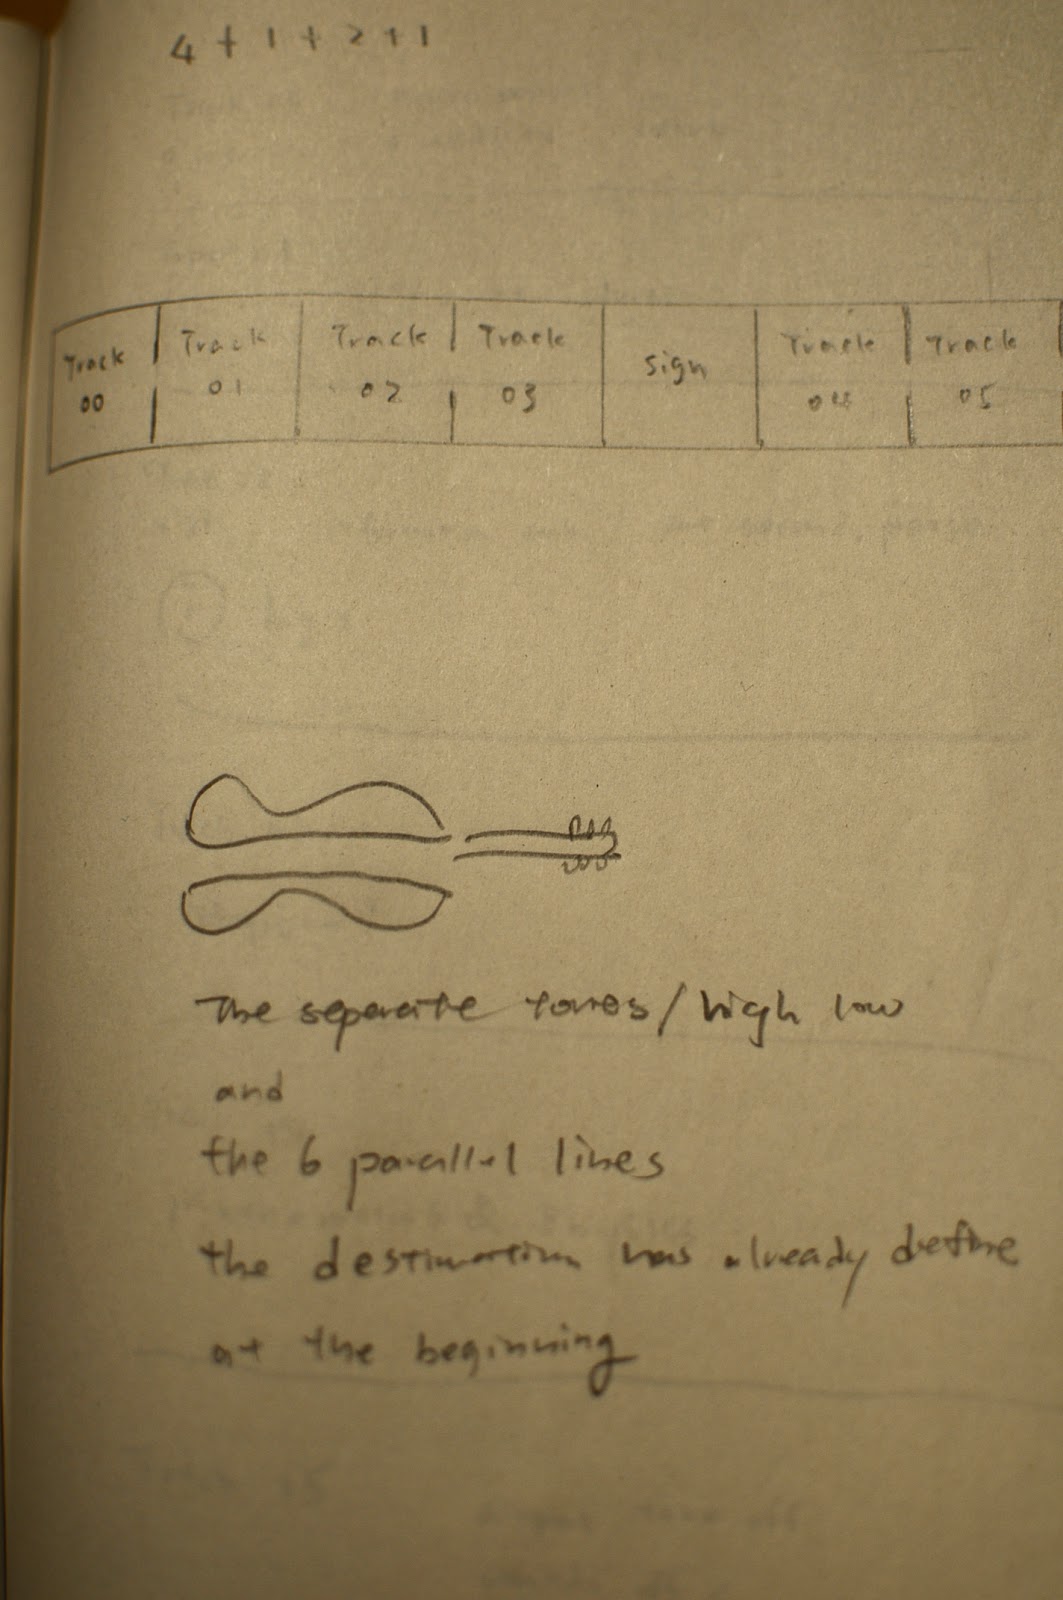 4 + 1 + 2 + 1
Track 00 Track 01 Track 02 Track 03 sign Track 04 Track 05
The separate tones / high low
and
the 6 parallel lines
the destination has already define
at the beginning